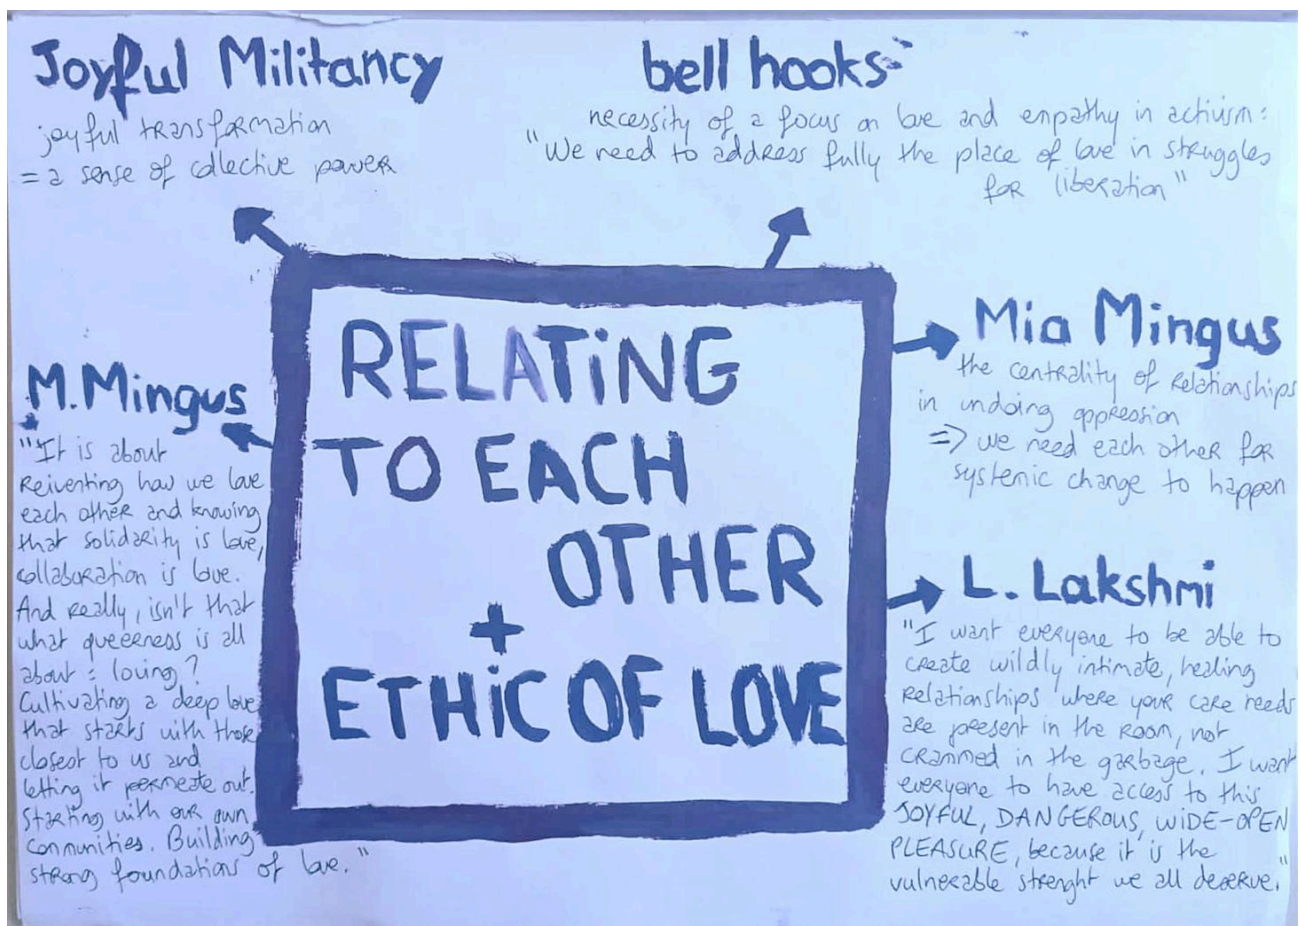 Joyful Militancy
joyful transformation
= a sense of collective power
bell hooks
necessity of a focus on love and empathy in activism :
"We need to address fully the place of love in struggles
for liberation"
RELATiNG
TO EACH
OTHER
+
ETHiC OF LOVE
M.Mingus
"It is about
Reiventing how we love
each other and knowing
that solidarity is love,
collaboration is love.
And really, isn't that
what queerness is all
about : loving ?
Cultivating a deep love
that starts with those
closest to us and
letting it permeate out.
Starting with our own
communities. Building
strong foundations of love."
Mia Mingus
the centrality of relationships
in undoing oppression
=> we need each other for
systemic change to happen
L. Lakshmi
"I want everyone to be able to
create wildly intimate, healing
relationships where your care needs
are present in the room, not
crammed in the garbage. I want
everyone to have access to this
JOYFUL, DANGEROUS, WIDE-OPEN
PLEASURE, because it is the
vulnerable strenght we all deserve."